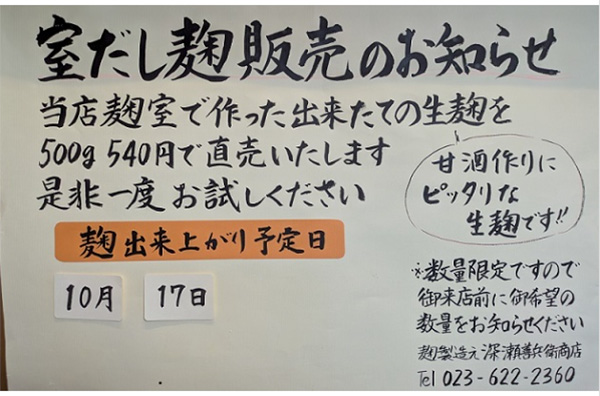 室だし麹販売のお知らせ
当店麹室で作った出来たての生麹を
500g 540円で直売いたします
是非一度 お試しください
甘酒作りに
ピッタリな
生麹です!!
麹出来上がり予定日
10月 17日
※数量限定ですので
御来店前に御希望の
数量をお知らせください
麹製造元 深瀬善兵衛商店
Tel 023-622-2360